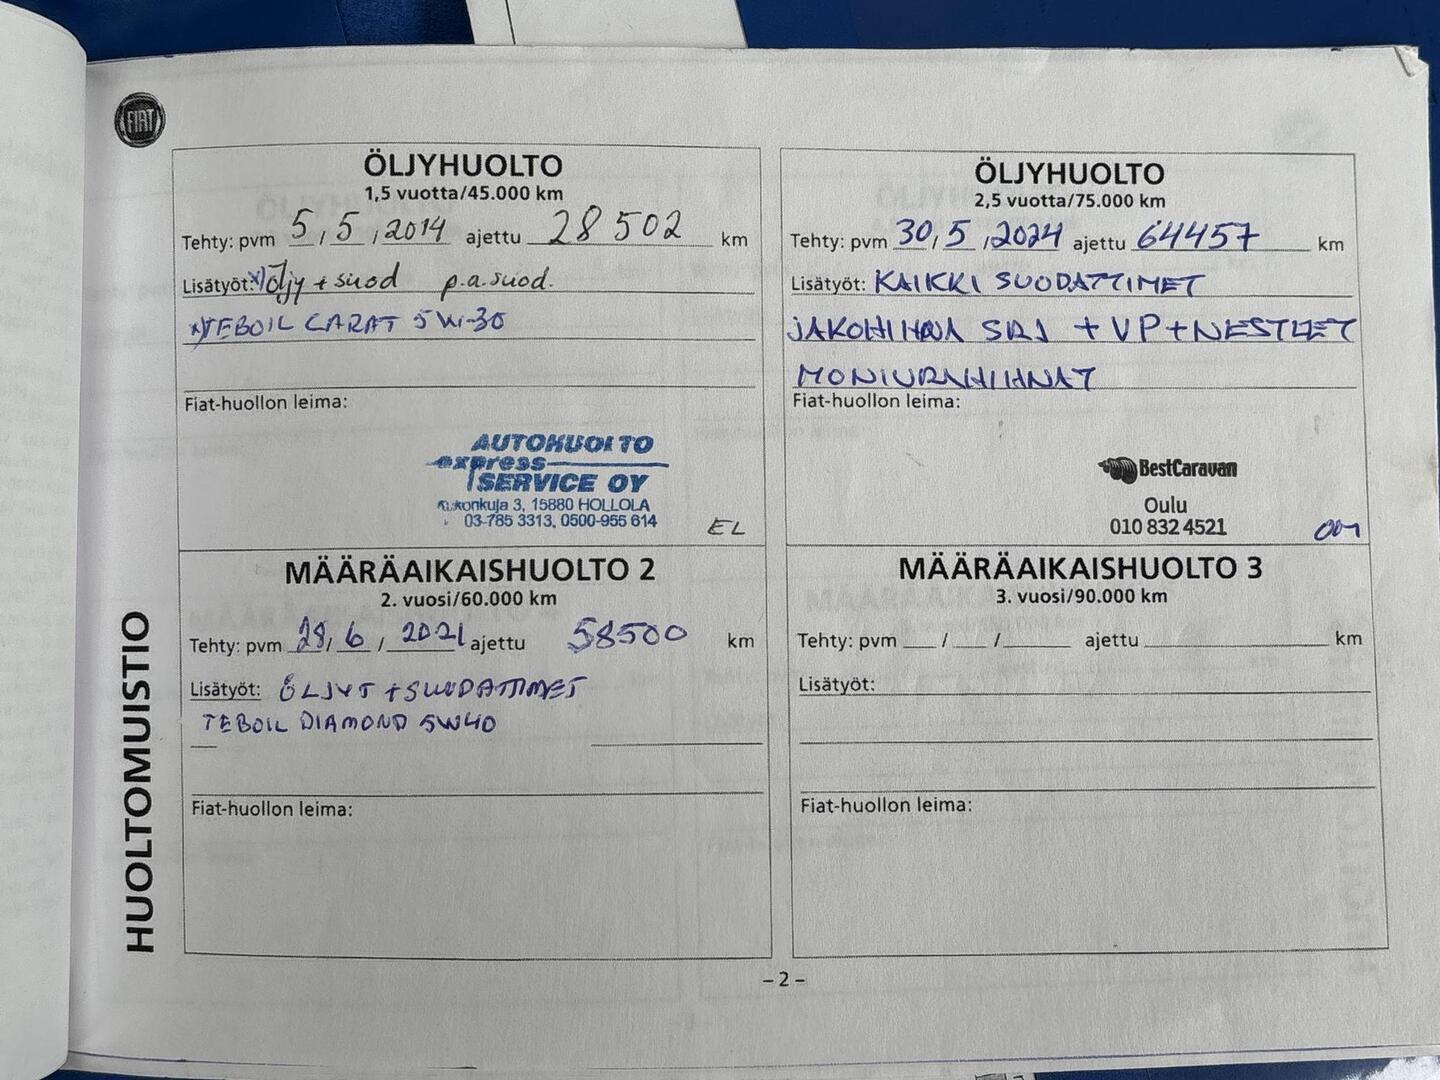 FIAT
HUOLTOMUISTIO
ÖLJYHUOLTO
1,5 vuotta/45.000 km
Tehty: pvm 5, 5, 2014 ajettu 28 502 km
Lisätyöt: x) Öljy + suod p.a.suod.
x) TEBOIL CARAT 5W-30
Fiat-huollon leima:
AUTOHUOLTO
express
SERVICE OY
3, 15880 HOLLOLA
03-785 3313, 0500-955 614
EL
ÖLJYHUOLTO
2,5 vuotta/75.000 km
Tehty: pvm 30, 5, 2024 ajettu 64457 km
Lisätyöt: KAIKKI SUODATTIMET
JAKOHIHNA SRJ + VP + NESTEET
MONIURAHIHNAT
Fiat-huollon leima:
BestCaravan
Oulu
010 832 4521
MÄÄRÄAIKAISHUOLTO 2
2. vuosi/60.000 km
Tehty: pvm 28, / 6 / 2021 ajettu 58500 km
Lisätyöt: ÖLJYT + SUODATTIMET
TEBOIL DIAMOND 5W40
Fiat-huollon leima:
MÄÄRÄAIKAISHUOLTO 3
3. vuosi/90.000 km
Tehty: pvm / / ajettu km
Lisätyöt:
Fiat-huollon leima:
– 2 –